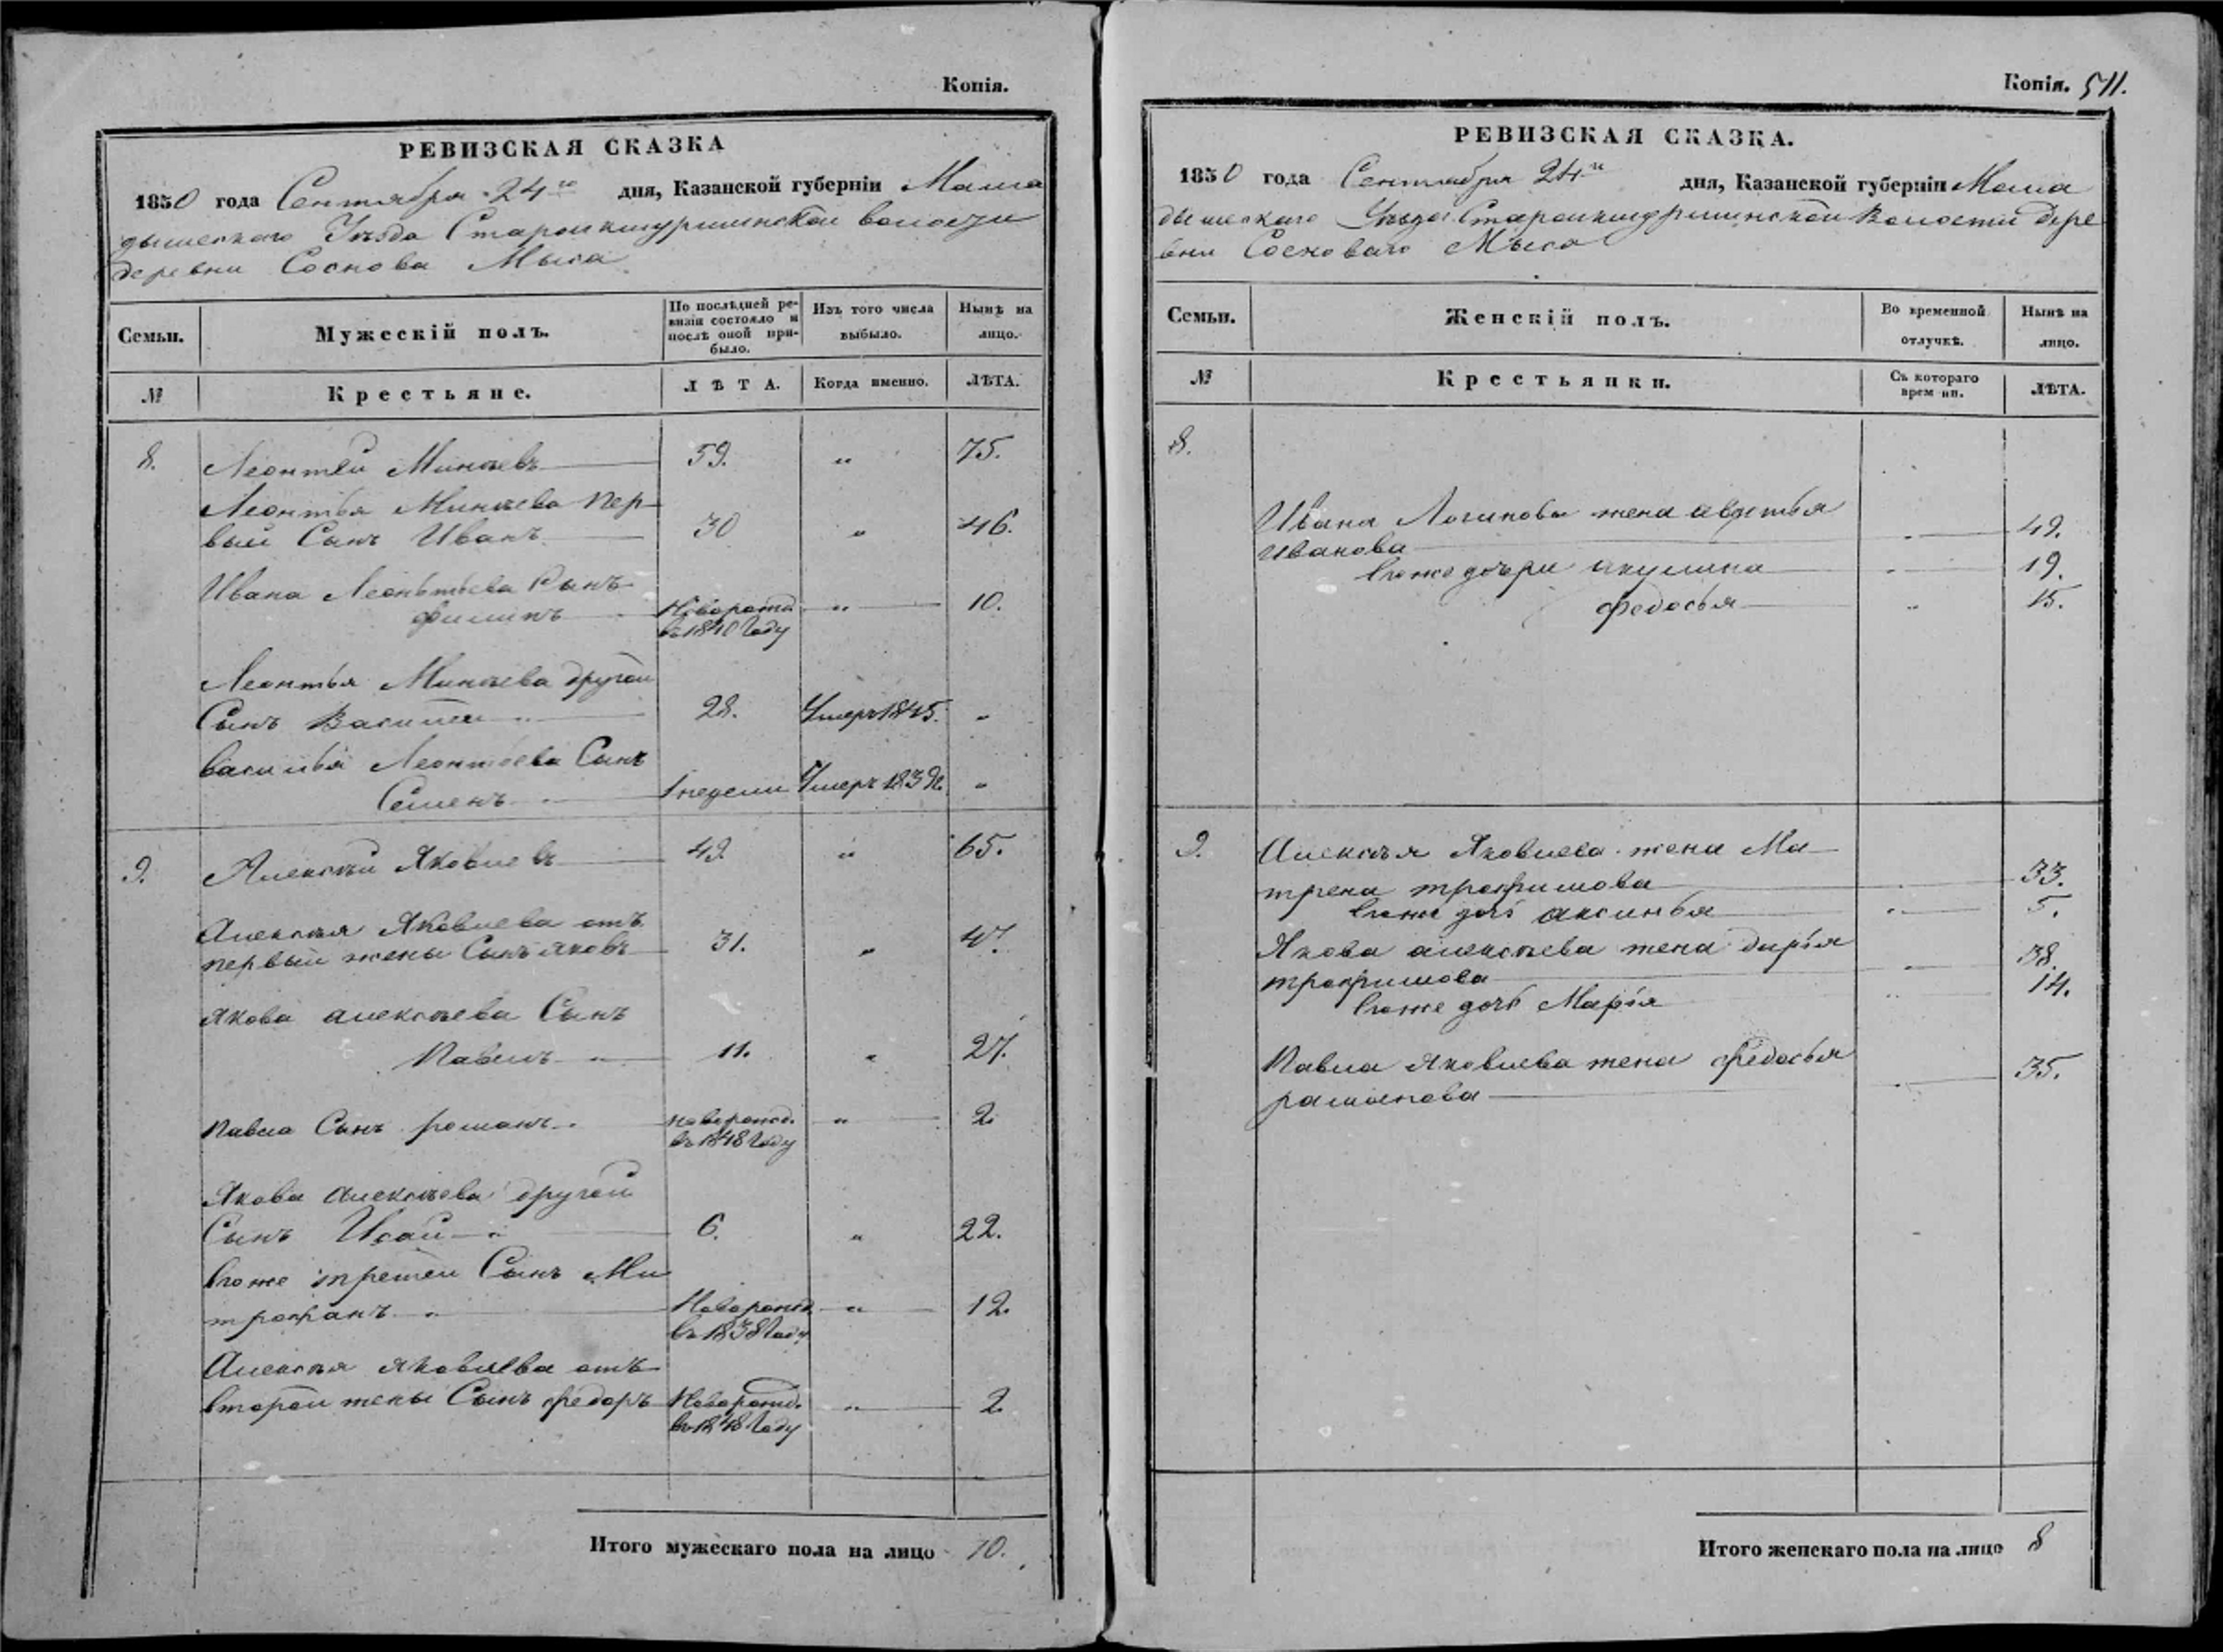 Копія.
РЕВИЗСКАЯ СКАЗКА
1850 года Сентября 24го дня, Казанской губерніи Мама
дышскаго Уѣзда волости
деревни Соснова Мыса
Семьи.
Мужескій полъ.
По послѣдней ре-
визіи состояло и
послѣ оной при-
было.
Изъ того числа
выбыло.
Нынѣ на
лицо.
№
Крестьяне.
ЛѢТА.
Когда именно.
ЛѢТА.
8. Леонтей Минаевъ 59. " 75.
Леонтья Минаева пер
вый Сынъ Иванъ 30 " 46.
Ивана Леонтьева Сынъ
Филипъ Новорожд. " 10.
въ 1840 Году
Леонтья Минаева другой
Сынъ Василей " 28. Умеръ 1845. "
Василья Леонтьева Сынъ
Семенъ " 1 недели Умеръ "
9. Алексѣй Яковлевъ 49. " 65.
Алексѣя Яковлева отъ
первый жены Сынъ яковъ 31. " 47.
Якова алексѣева Сынъ
Павелъ " 11. " 27.
Павла Сынъ романъ " новорожд. " 2.
въ 1848 Году
Якова алексѣева другой
Сынъ Исай " 6. " 22.
Егоже третей Сынъ Ми
трофанъ " Новорожд. " 12.
въ 1838 Году
Алексѣя яковлева отъ
второй жены Сынъ федоръ Новорожд. " 2.
въ 1848 Году
Итого мужескаго пола на лицо 10.
Копія. 511.
РЕВИЗСКАЯ СКАЗКА.
1850 года Сентября 24го дня, Казанской губерніи Мама
дышскаго Уѣзда Волости дере
вни Сосноваго Мыса
Семьи.
Женскій полъ.
Во временной
отлучкѣ.
Нынѣ на
лицо.
№
Крестьянки.
Съ котораго
времени.
ЛѢТА.
8.
Ивана жена авдотья
Иванова " 49.
Егоже дочери акулина " 19.
федосья " 15.
9. Алексѣя Яковлева жена Ма
трена трофимова " 33.
Егоже дочь аксинья " 5.
Якова алексѣева жена дарья
трофимова " 38.
Егоже дочь Марья " 14.
Павла яковлева жена федосья
раманова " 35.
Итого женскаго пола на лицо 8